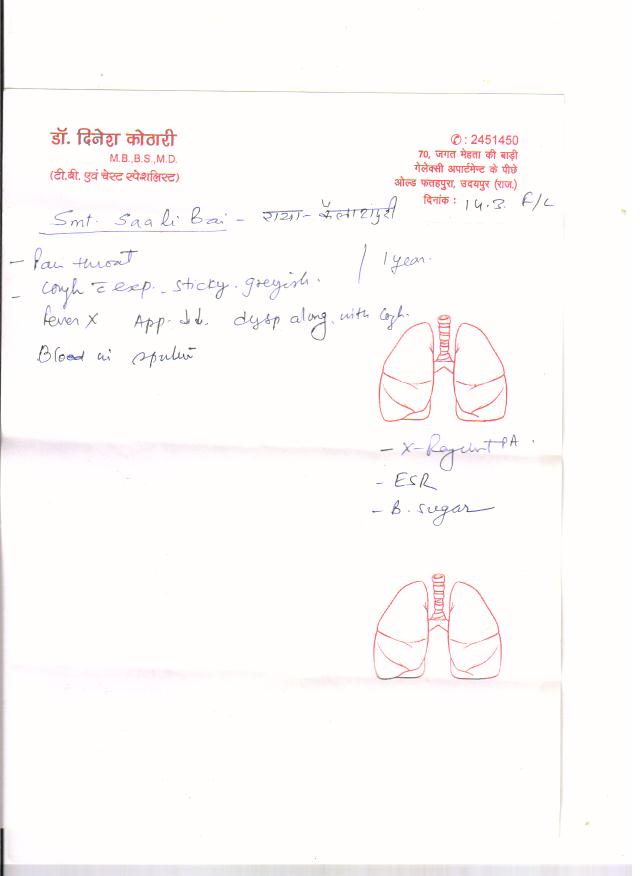 डॉ. दिनेश कोठारी
M.B.,B.S.,M.D.
(टी.बी. एवं चेस्ट स्पेशलिस्ट)
✆ : 2451450
70, जगत मेहता की बाड़ी
गेलेक्सी अपार्टमेन्ट के पीछे
ओल्ड फतहपुरा, उदयपुर (राज.)
दिनांक : 14.3.
Smt. Saali Bai - राया - कैलाशपुरी
- Pain throat
- Cough c̄ exp. - sticky. greyish. / 1 year.
Fever X App. ↓↓. dysp along with Cogh.
Blood in sputum
- X-Ray chest PA.
- ESR
- B. sugar